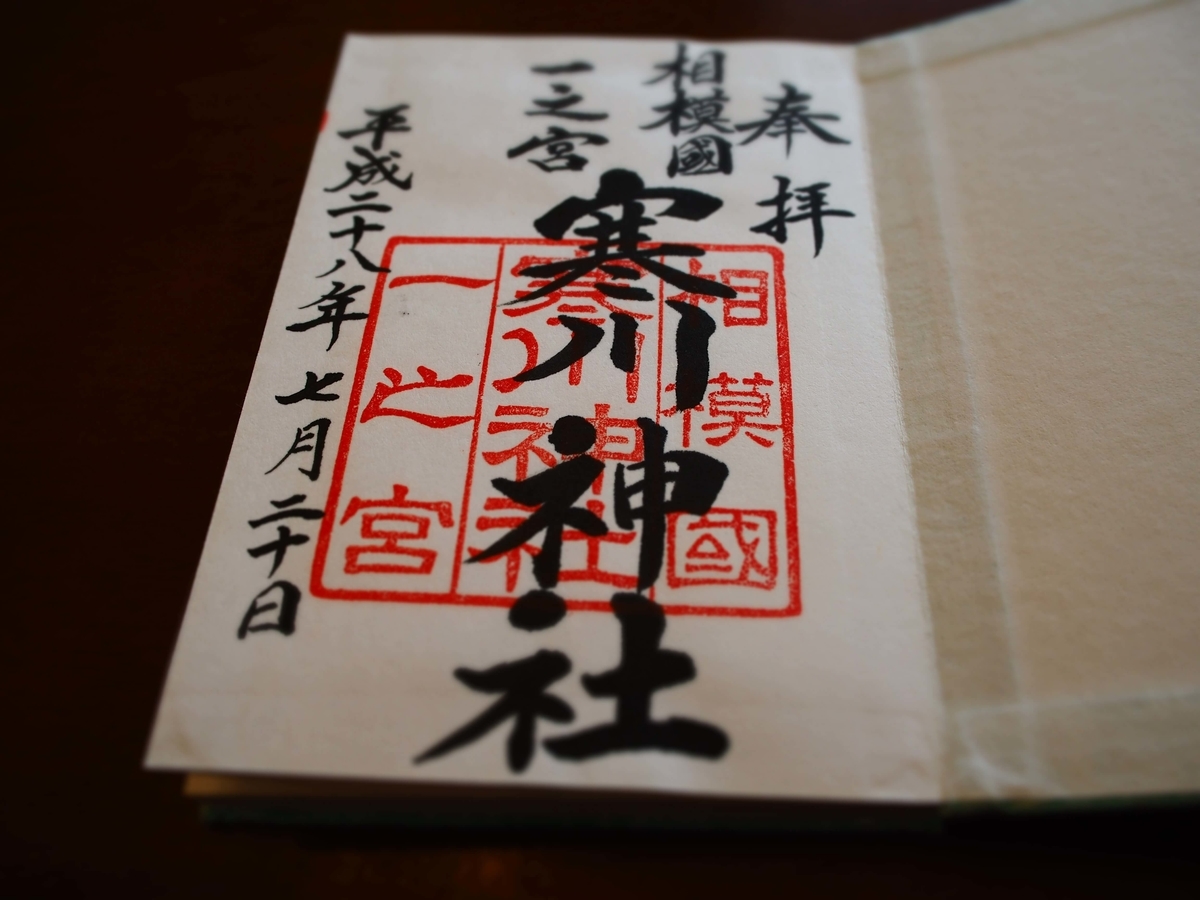 奉拝
相模國
一之宮
寒川神社
平成二十八年七月二十日
相模國
寒川神社
一之宮